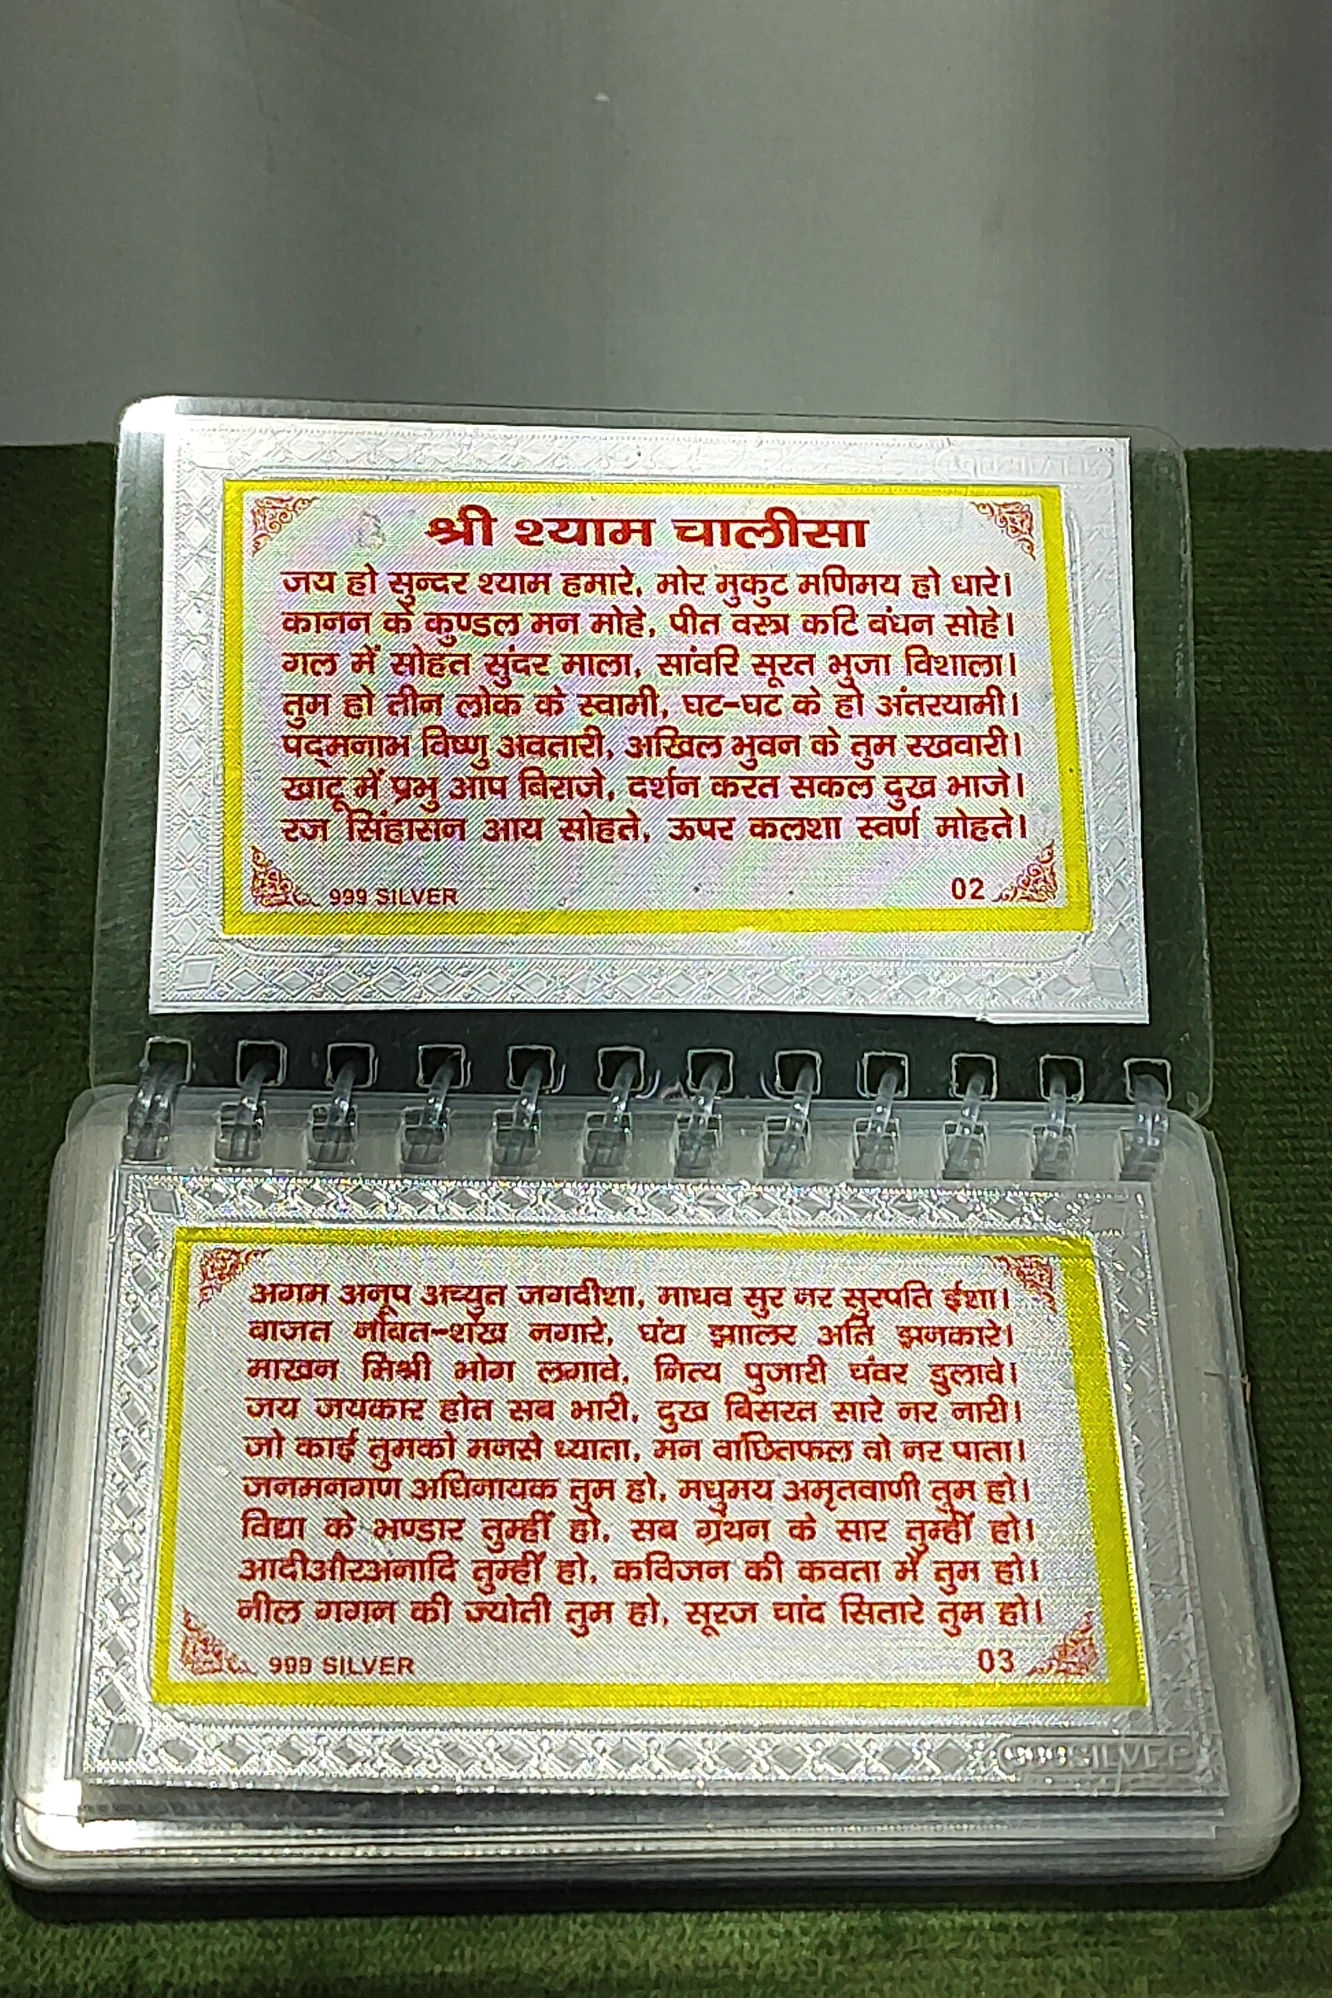 श्री श्याम चालीसा
जय हो सुन्दर श्याम हमारे, मोर मुकुट मणिमय हो धारे।
कानन के कुण्डल मन मोहे, पीत वस्त्र कटि बंधन सोहे।
गल में सोहत सुंदर माला, सांवरि सूरत भुजा विशाला।
तुम हो तीन लोक के स्वामी, घट-घट के हो अंतरयामी।
पद्मनाभ विष्णु अवतारी, अखिल भुवन के तुम रखवारी।
खाटू में प्रभु आप बिराजे, दर्शन करत सकल दुख भाजे।
रज सिंहासन आय सोहते, ऊपर कलशा स्वर्ण मोहते।
999 SILVER
02
अगम अनूप अच्युत जगदीशा, माधव सुर नर सुरपति ईशा।
बाजत नौबत-शंख नगारे, घंटा झालर अति झनकारे।
माखन मिश्री भोग लगावे, नित्य पुजारी चंवर डुलावे।
जय जयकार होत सब भारी, दुख बिसरत सारे नर नारी।
जो काई तुमको मनसे ध्याता, मन वांछितफल वो नर पाता।
जनमनगण अधिनायक तुम हो, मधुमय अमृतवाणी तुम हो।
विद्या के भण्डार तुम्हीं हो, सब ग्रंथन के सार तुम्हीं हो।
आदीऔरअनादि तुम्हीं हो, कविजन की कवता में तुम हो।
नील गगन की ज्योती तुम हो, सूरज चांद सितारे तुम हो।
999 SILVER
03
999 SILVER